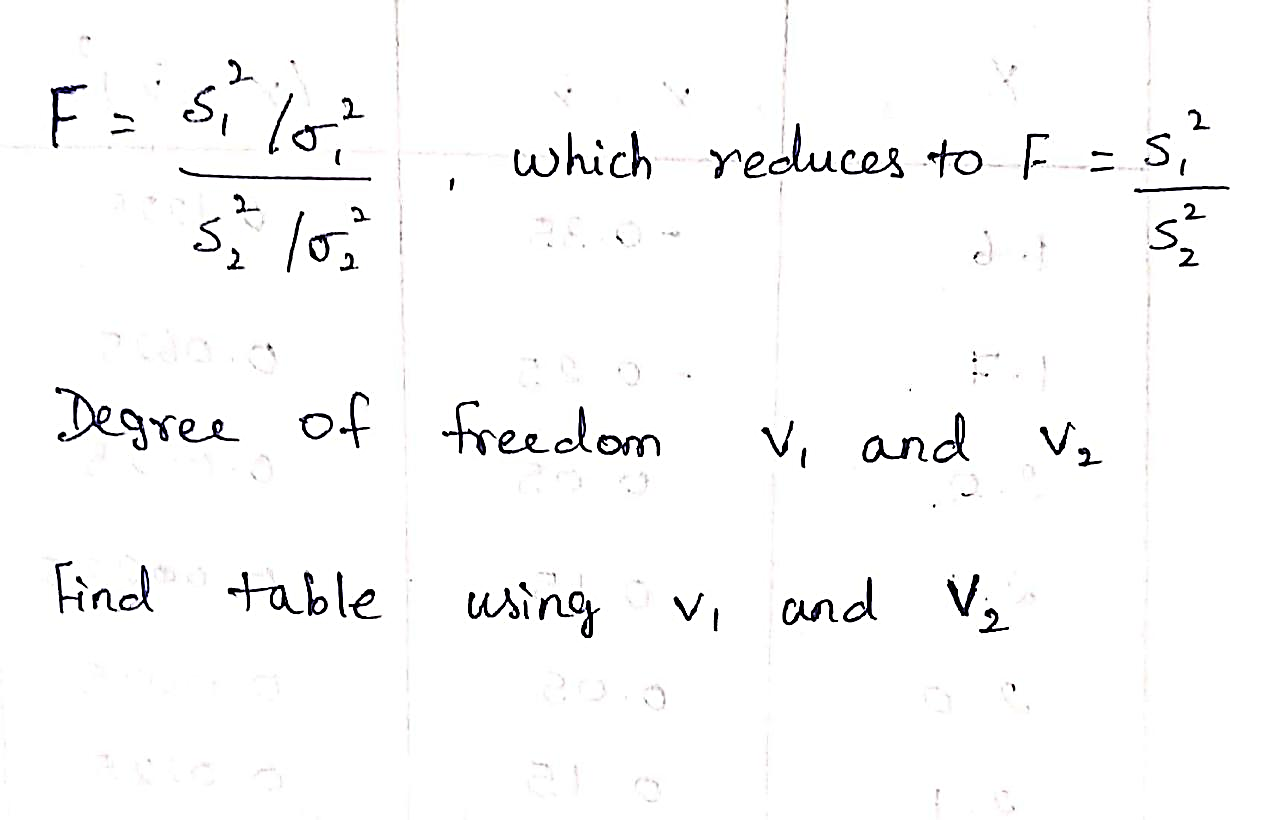 F = S₁² / σ₁² / S₂² / σ₂² , which reduces to F = S₁² / S₂²
Degree of freedom V₁ and V₂
Find table using V₁ and V₂